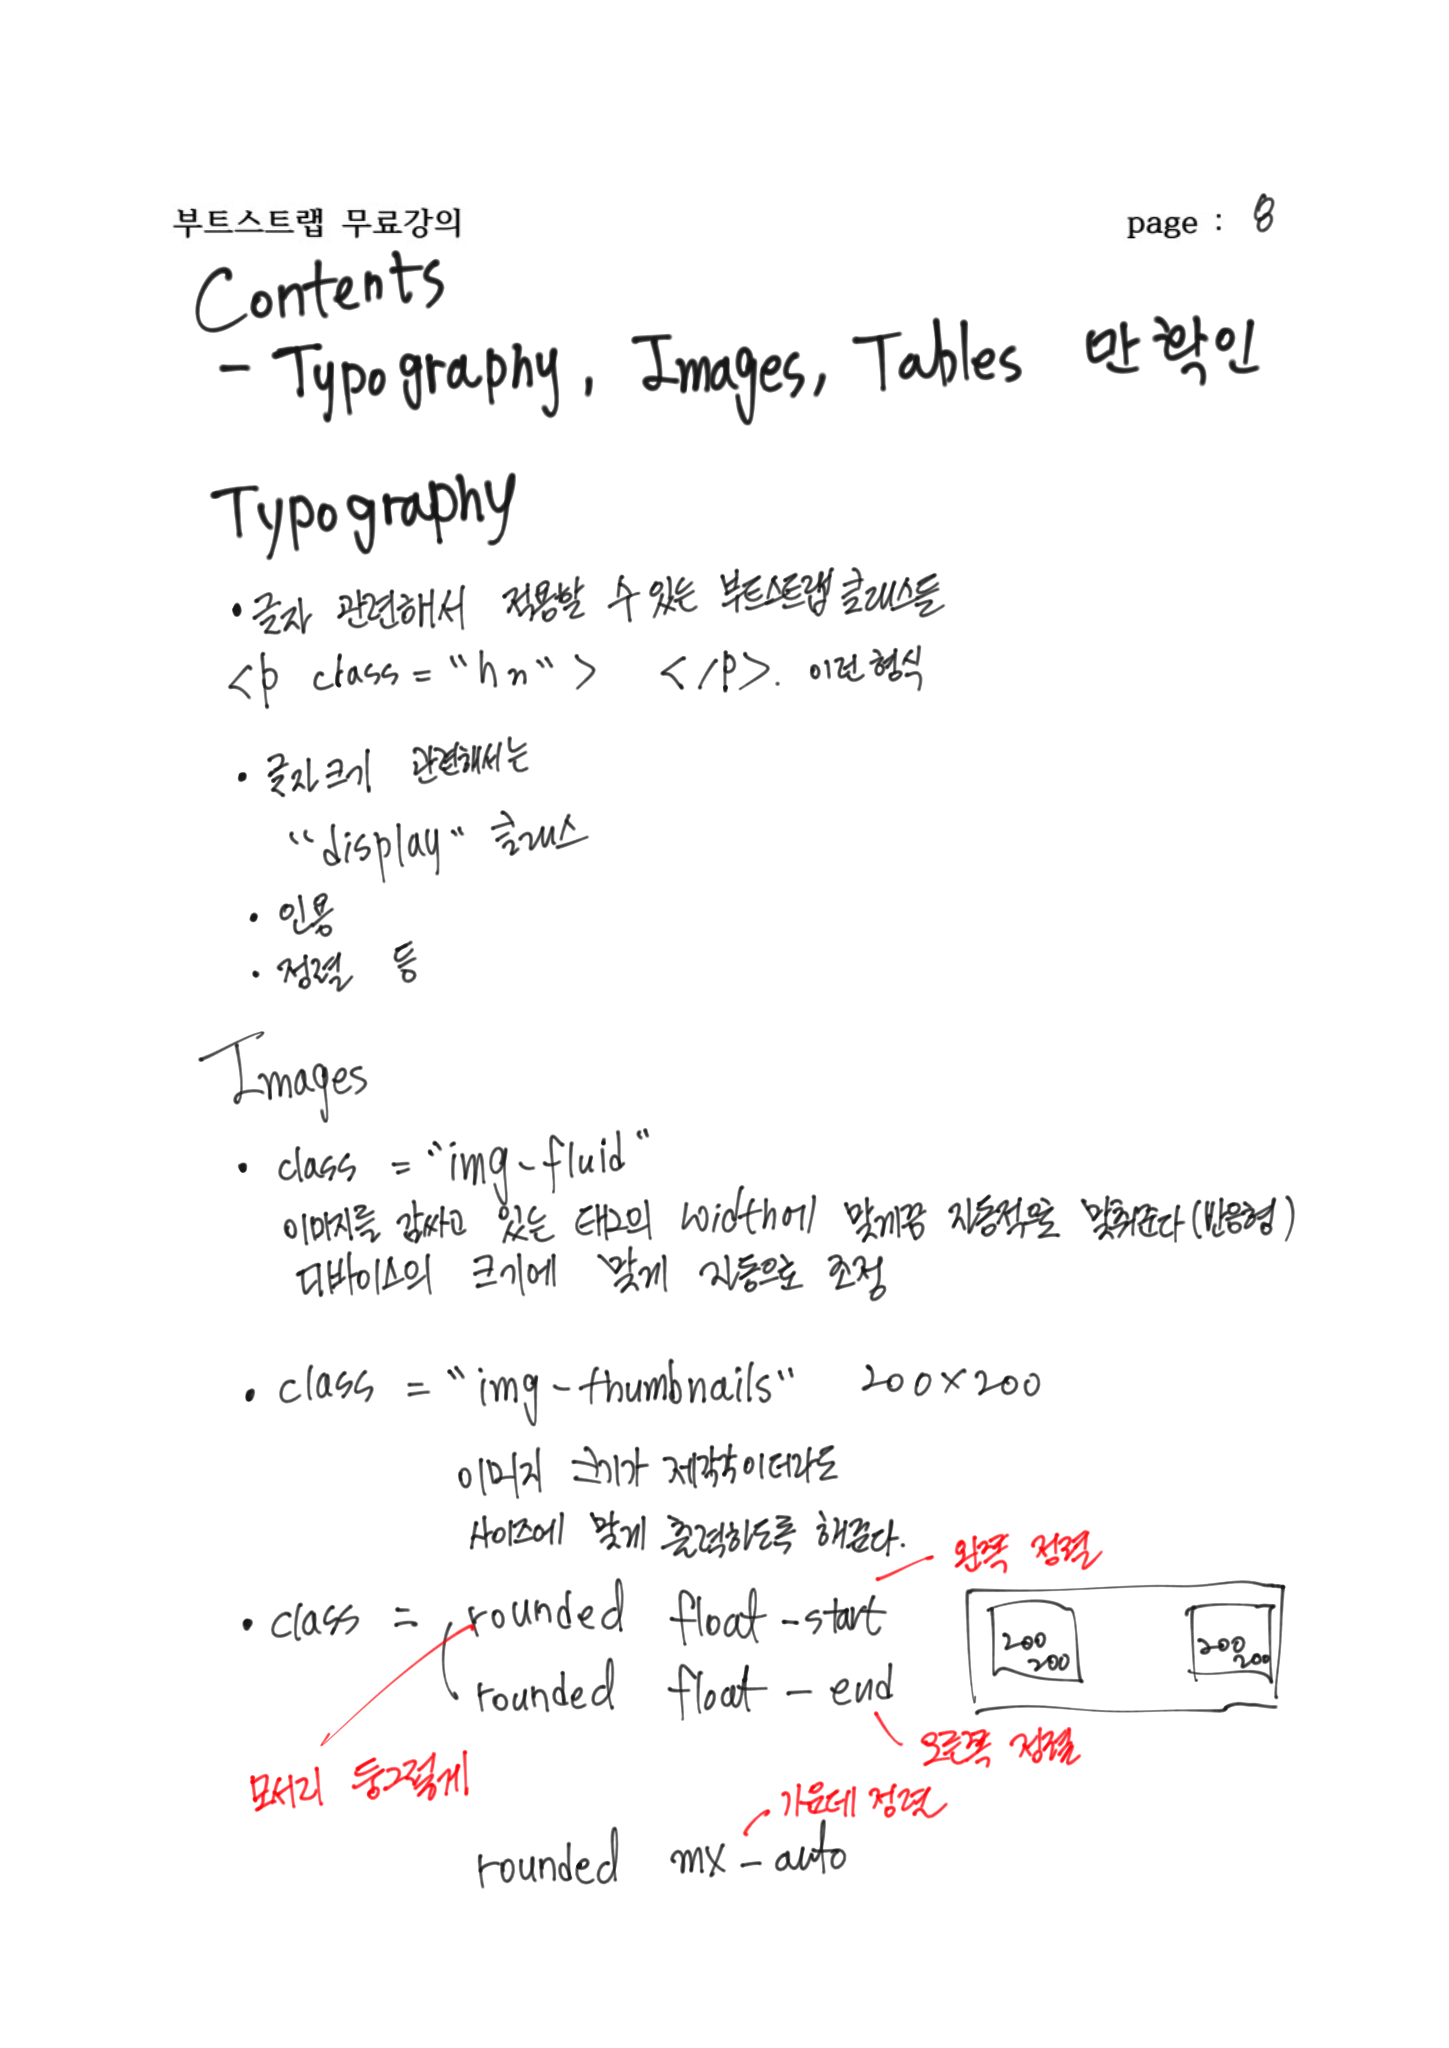 부트스트랩 무료강의 page : 8
Contents
- Typography, Images, Tables 만 확인
Typography
• 글자 관련해서 적용할 수 있는 부트스트랩 클래스들
<p class = "hn" > </p>. 이런 형식
• 글자크기 관련해서는
"display" 클래스
• 인용
• 정렬 등
Images
• class = "img-fluid"
이미지를 감싸고 있는 태그의 width에 맞게끔 자동적으로 맞춰준다 (반응형)
디바이스의 크기에 맞게 자동으로 조정
• class = "img-thumbnails" 200×200
이미지 크기가 제각각이더라도
사이즈에 맞게 출력하도록 해준다.
왼쪽 정렬
• class = rounded float-start
200
200
200
200
rounded float - end
오른쪽 정렬
모서리 둥그렇게
가운데 정렬
rounded mx - auto